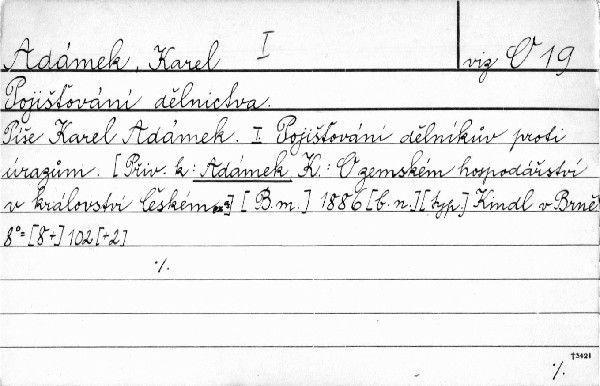 Adámek, Karel I viz O 19
Pojišťování dělnictva.
Píše Karel Adámek. I. Pojišťování dělníkův proti
úrazům. [Přiv. k: Adámek K.: O zemském hospodářství
v království českém] [B.m.] 1886 [b.n.] [typ.] Kindl v Brně
8°=[8+] 102 [+2]
./.
†3421
./.